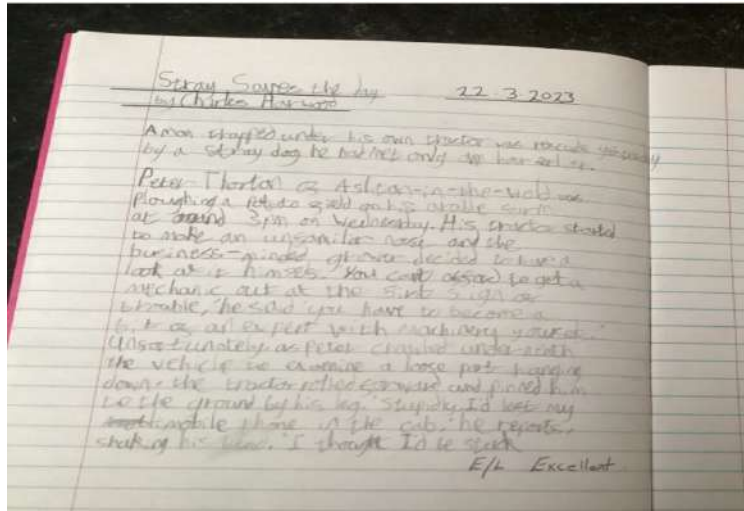 Stray Saves the day 22.3.2023
by Charles Harwood
A man trapped under his own tractor was yesterday
by a stray dog he had met only an
Peter Thorton of Ashton-in-the-wold was
ploughing a potato field on his arable farm
at around 3pm on Wednesday. His tractor started
to make an unfamiliar and the
business-minded grower decided to have a
look at it himself. 'You can't afford to get a
mechanic out at the first sign of
trouble,' he said 'you have to become a
bit of an expert with machinery yourself.'
Unfortunately, as Peter crawled underneath
the vehicle to examine a loose part hanging
down, the tractor rolled forward and pinned him
to the ground by his leg. 'Stupidly, I'd left my
mobile phone in the cab,' he reports,
shaking his head. 'I thought I'd be stuck
E/L Excellent